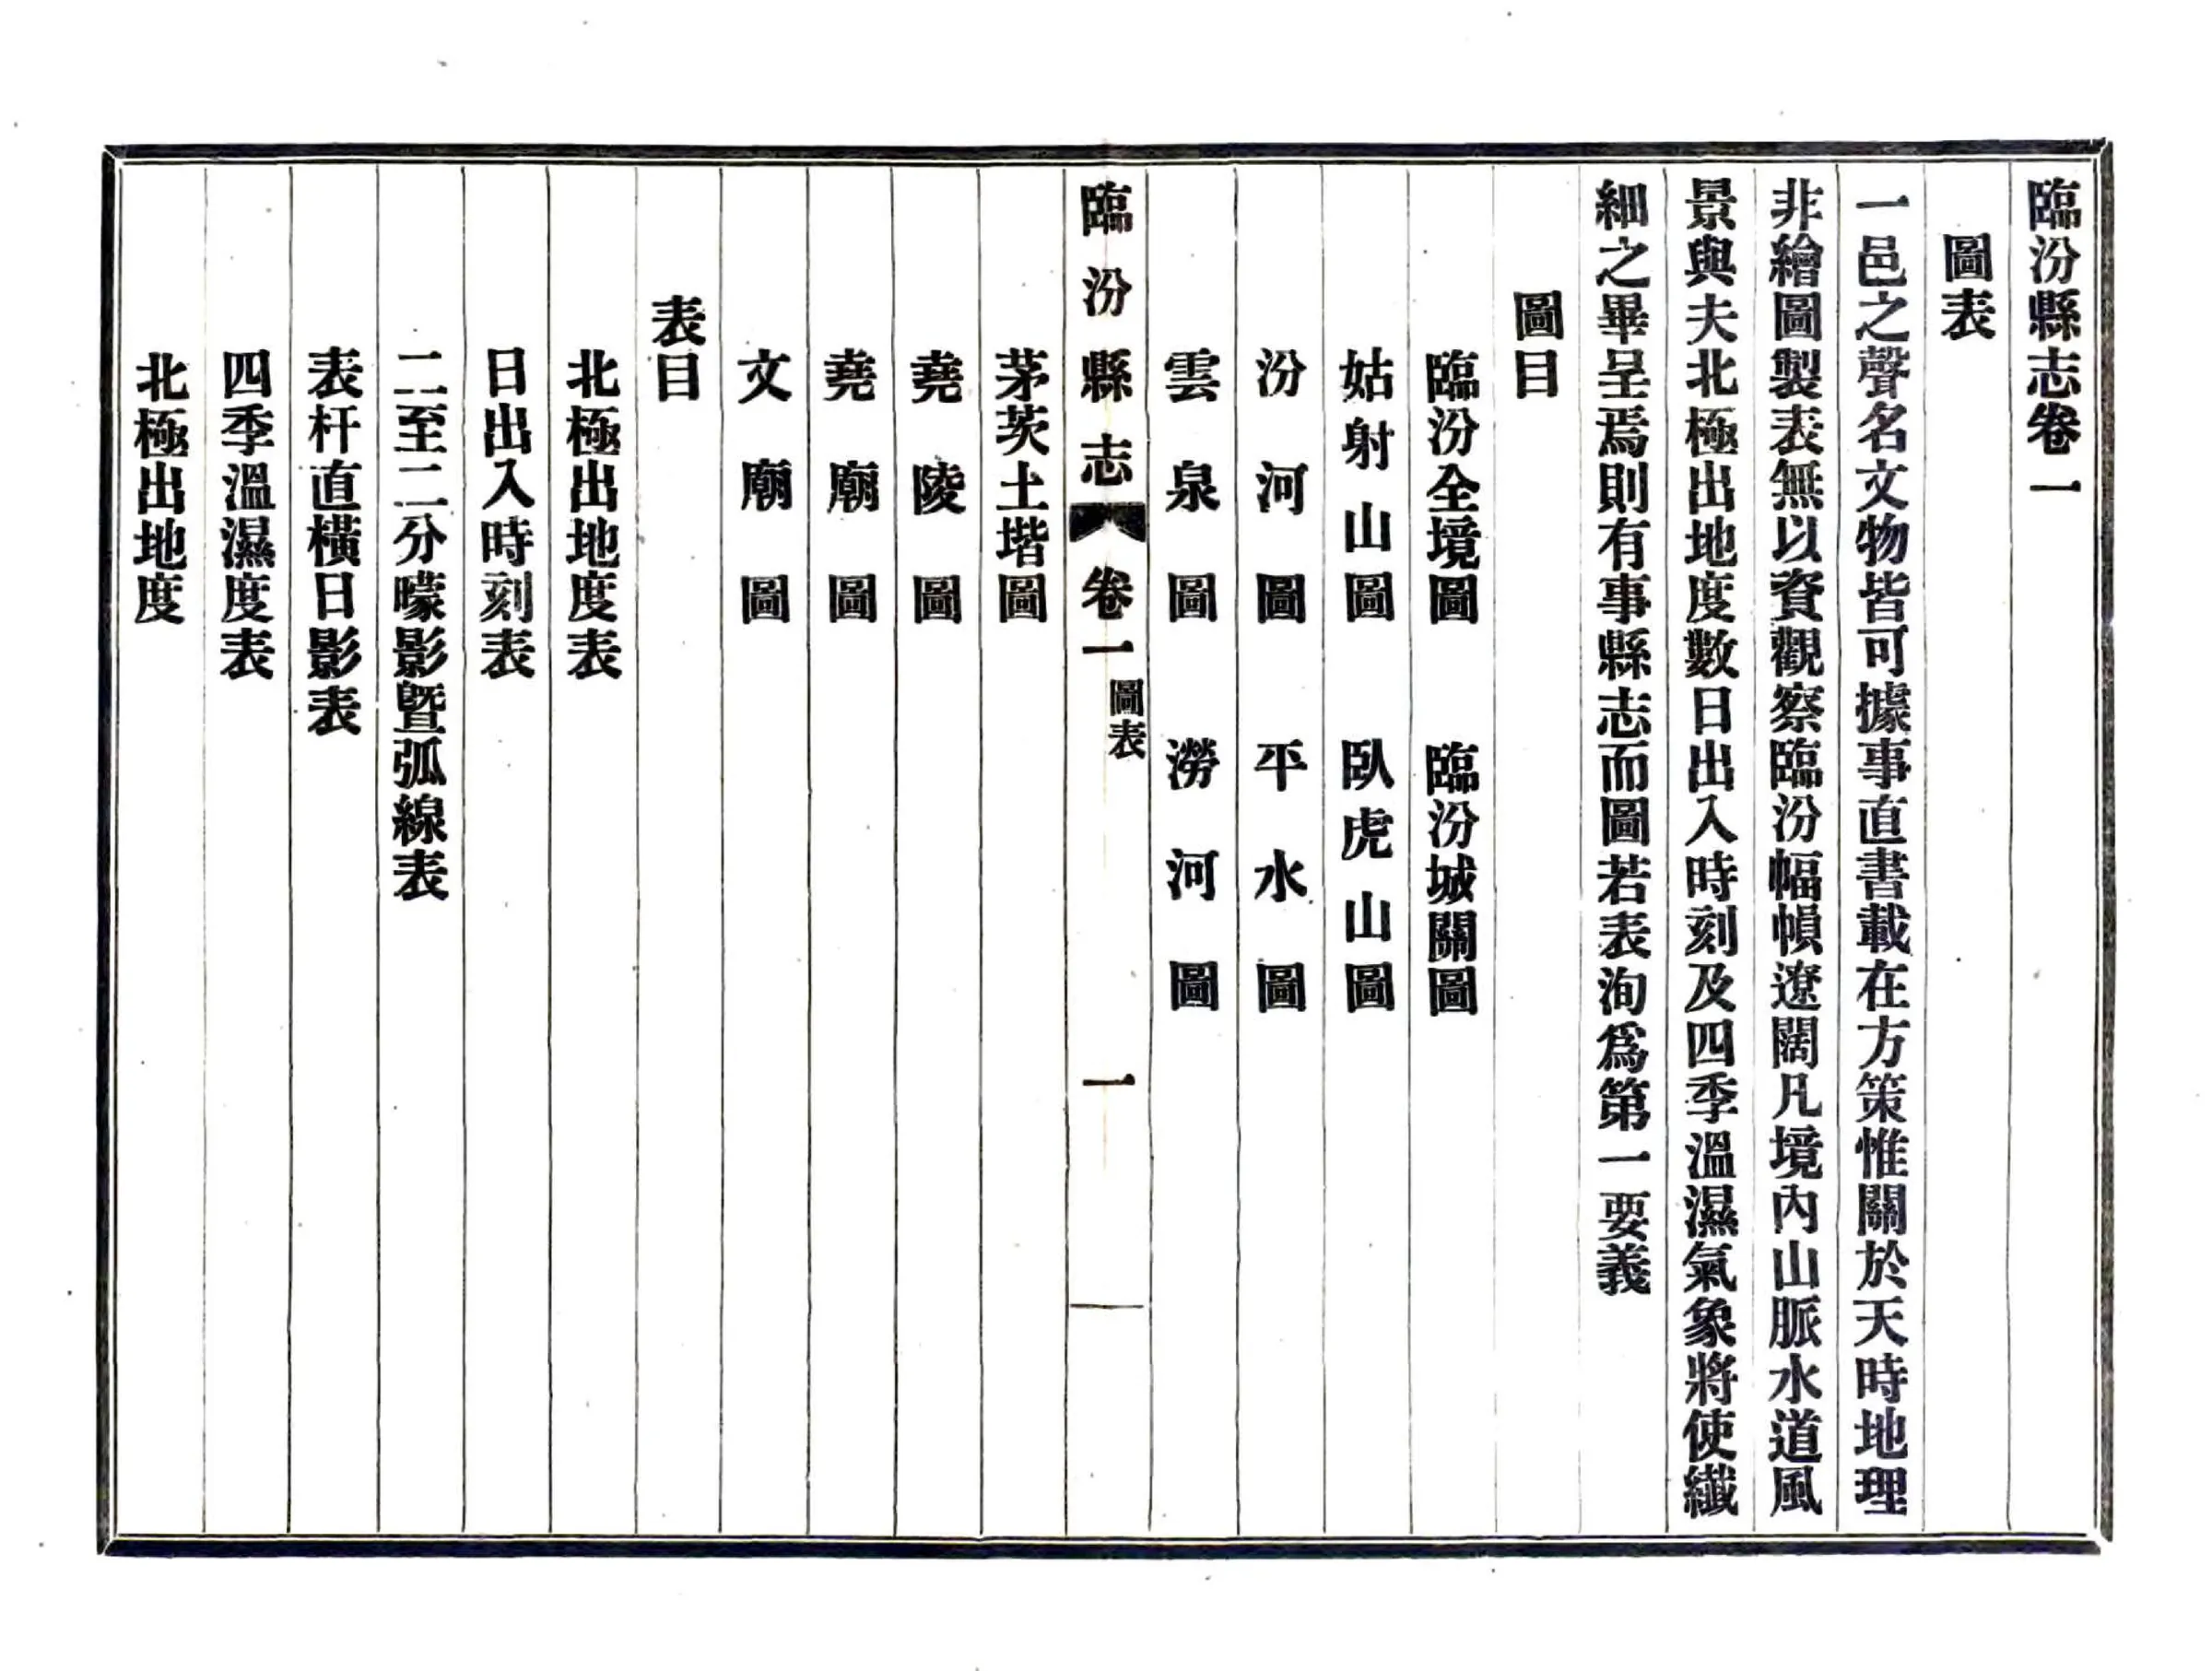 臨汾縣志卷一
圖表
一邑之聲名文物皆可據事直書載在方策惟關於天時地理
非繪圖製表無以資觀察臨汾幅幀遼闊凡境內山脈水道風
景與夫北極出地度數日出入時刻及四季溫濕氣象將使纖
細之畢呈焉則有事縣志而圖若表洵爲第一要義
圖目
臨汾全境圖　臨汾城關圖
姑射山圖　臥虎山圖
汾河圖　平水圖
雲泉圖　澇河圖
臨汾縣志　卷一　圖表　一
茅茨土堦圖
堯陵圖
堯廟圖
文廟圖
表目
北極出地度表
日出入時刻表
二至二分曚影曁弧線表
表杆直橫日影表
四季溫濕度表
北極出地度